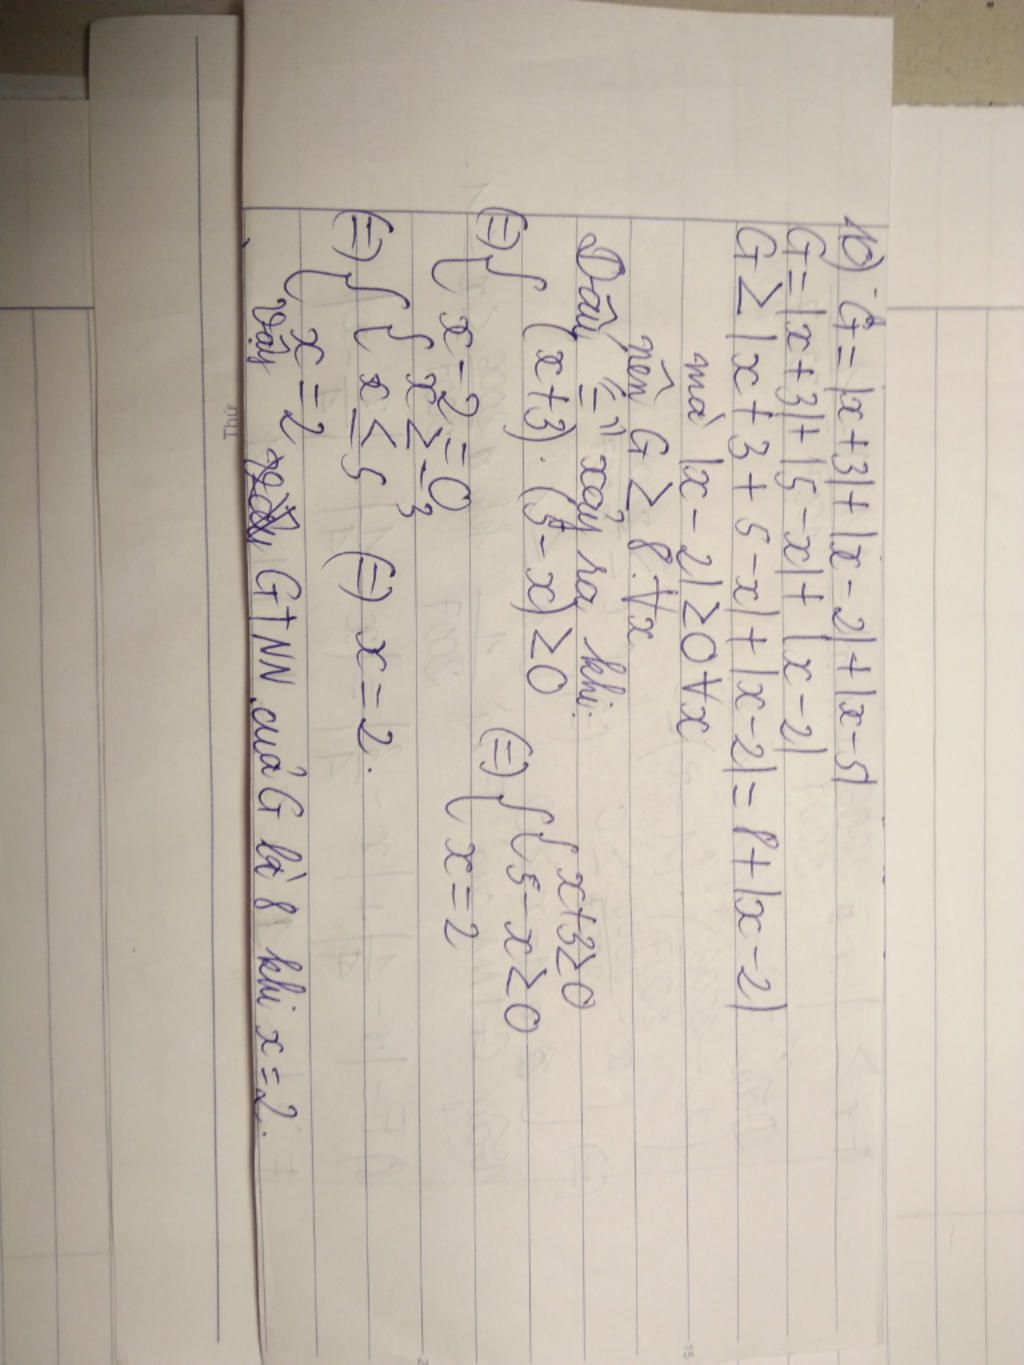 10) G = |x+3| + |x-2| + |x-5|
G = |x+3| + |5-x| + |x-2|
G ≥ |x+3+5-x| + |x-2| = 8 + |x-2|
mà |x-2| ≥ 0 ∀x
nên G ≥ 8 ∀x
Dấu "=" xảy ra khi:
(=) { (x+3).(5-x) ≥ 0
x-2=0
(=) { { x+3≥0
5-x≥0
x=2
(=) { { x≥-3
x≤5
x=2
(=) x=2.
Vậy GTNN của G là 8 khi x=2.
Thứ
15
2